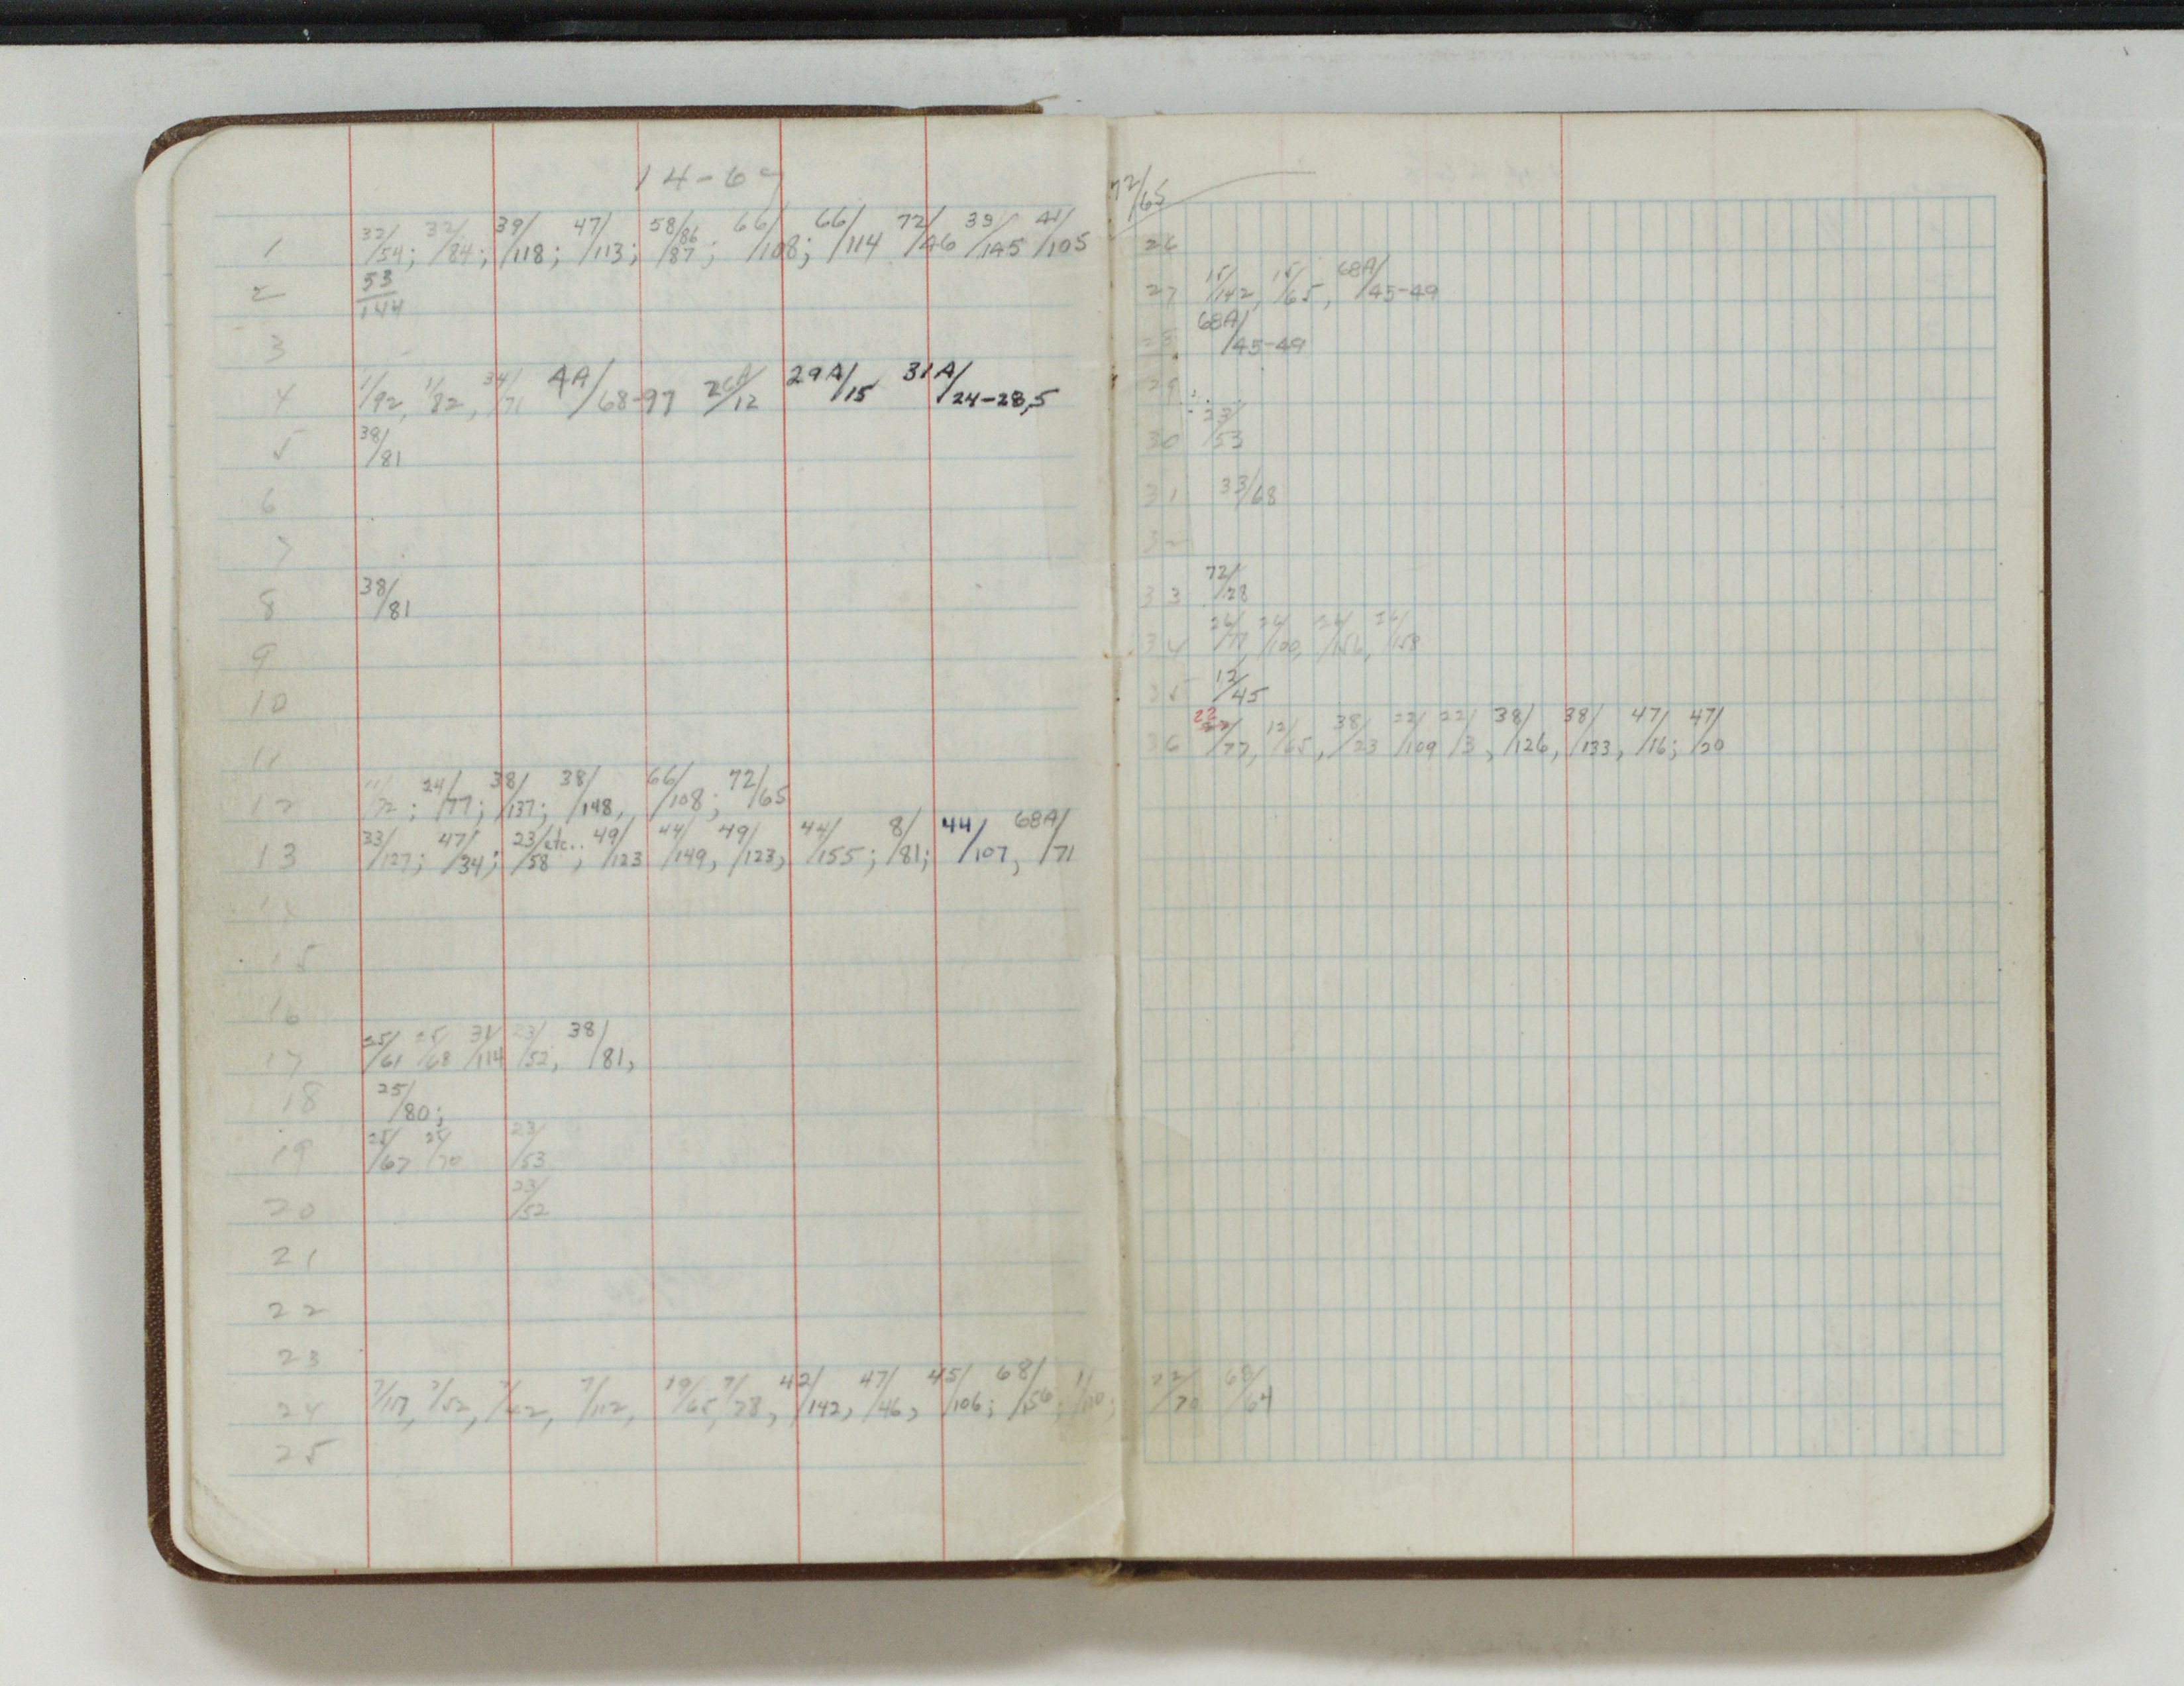 14-69
1 32/54; 32/84; 39/118; 47/113; 58/86/87; 66/108; 66/114 72/46 39/145 41/105
2 53/144
3
4 1/92, 1/82, 34/71 4A/68-97 26A/12 29A/15 31A/24-28,5
5 38/81
6
7
8 38/81
9
10
11
12 11/72; 24/77; 38/137; 38/148, 66/108; 72/65
13 33/127; 47/34; 23/58 etc., 49/123 44/149, 49/123, 44/155; 8/81; 44/107, 68A/71
14
15
16
17 25/61 25/68 31/114 23/52, 38/81,
18 25/80;
19 25/67 25/70 23/53
20 23/52
21
22
23
24 7/117, 7/52, 7/42, 7/112, 19/65, 7/78, 42/142, 47/46, 45/106; 68/56; 1/110; 72/70 68/64
25
72/65
26
27 15/142, 15/65, 68A/45-49
28 68A/45-49
29
30 23/53
31 33/68
32
33 72/28
34 26/77, 26/100, 26/156, 26/158
35 12/45
36 22/77, 12/65, 38/23 22/109 22/3, 38/126, 38/133, 47/16; 47/20